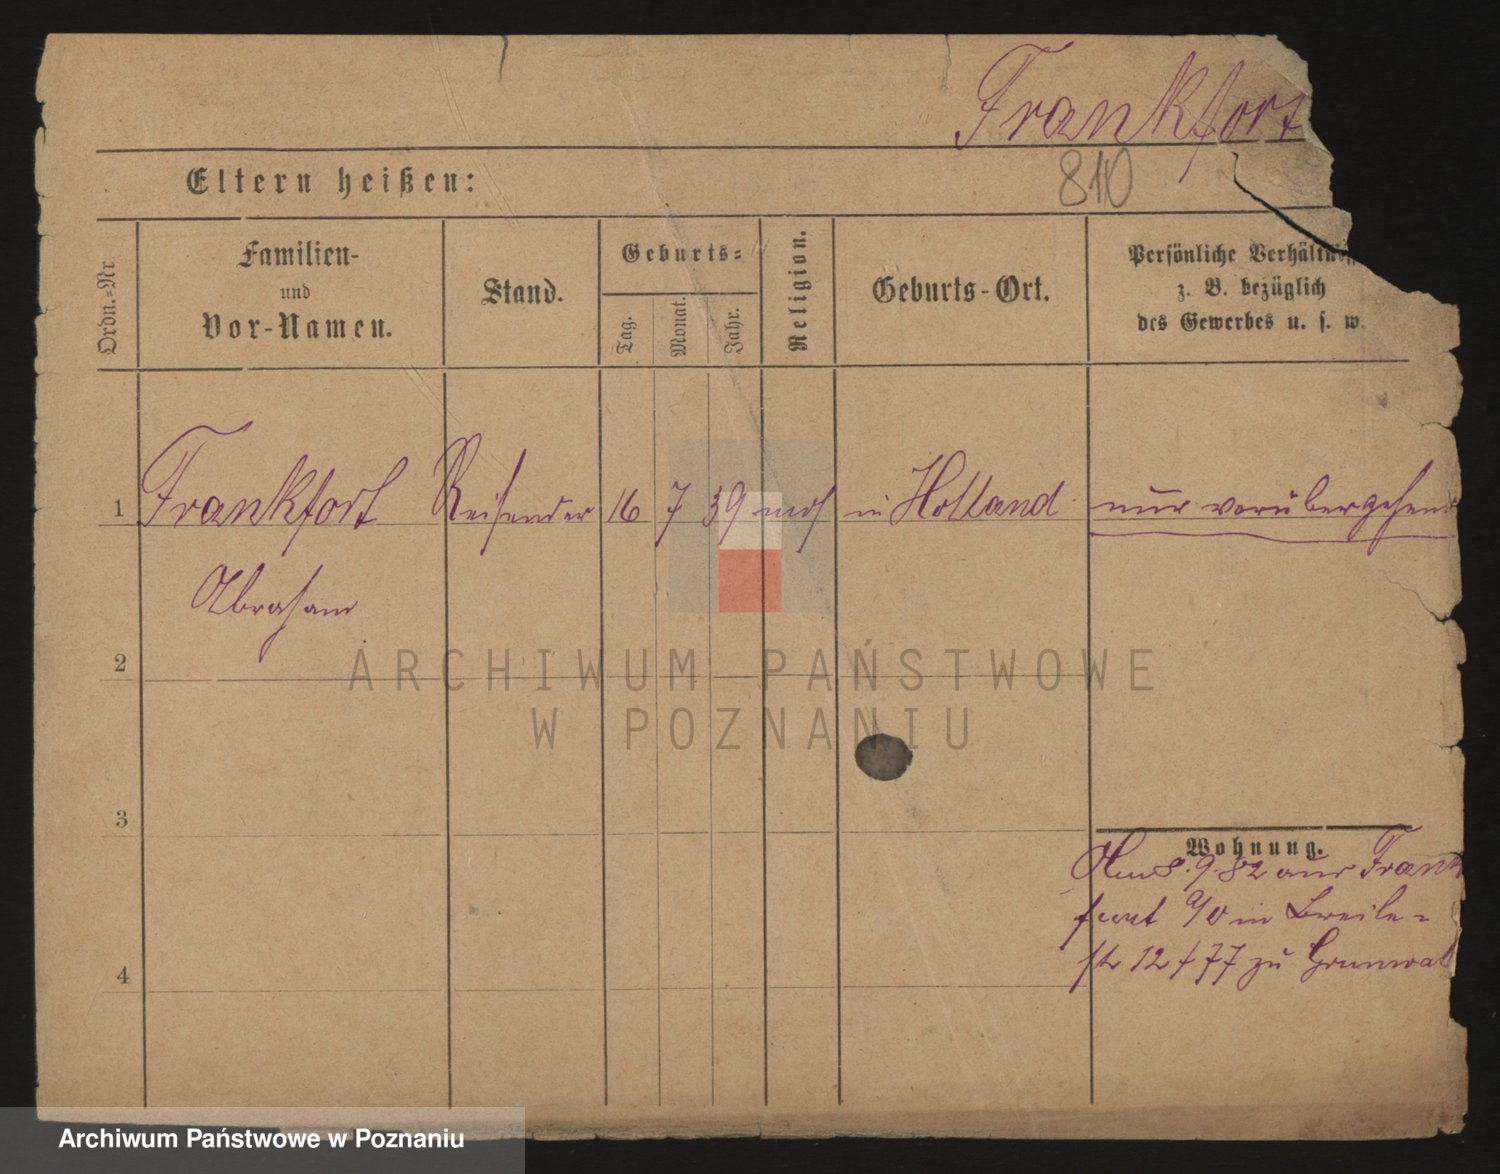 Frankfort
810
Eltern heißen:
Ordn.=Nr
Familien-
und
Vor-Namen.
Stand.
Geburts=
Tag.
Monat.
Jahr.
Religion.
Geburts-Ort.
Persönliche Verhältniss
z. B. bezüglich
des Gewerbes u. s. w.
1 Frankfort Reisender 16 7 39 mos in Holland nur vorübergehend
Abraham
2
ARCHIWUM PAŃSTWOWE
W POZNANIU
3
Wohnung.
8.9.82 aus Frank
furt a/O in Breite=
str 12 f 77 zu Grunwal
4
Archiwum Państwowe w Poznaniu